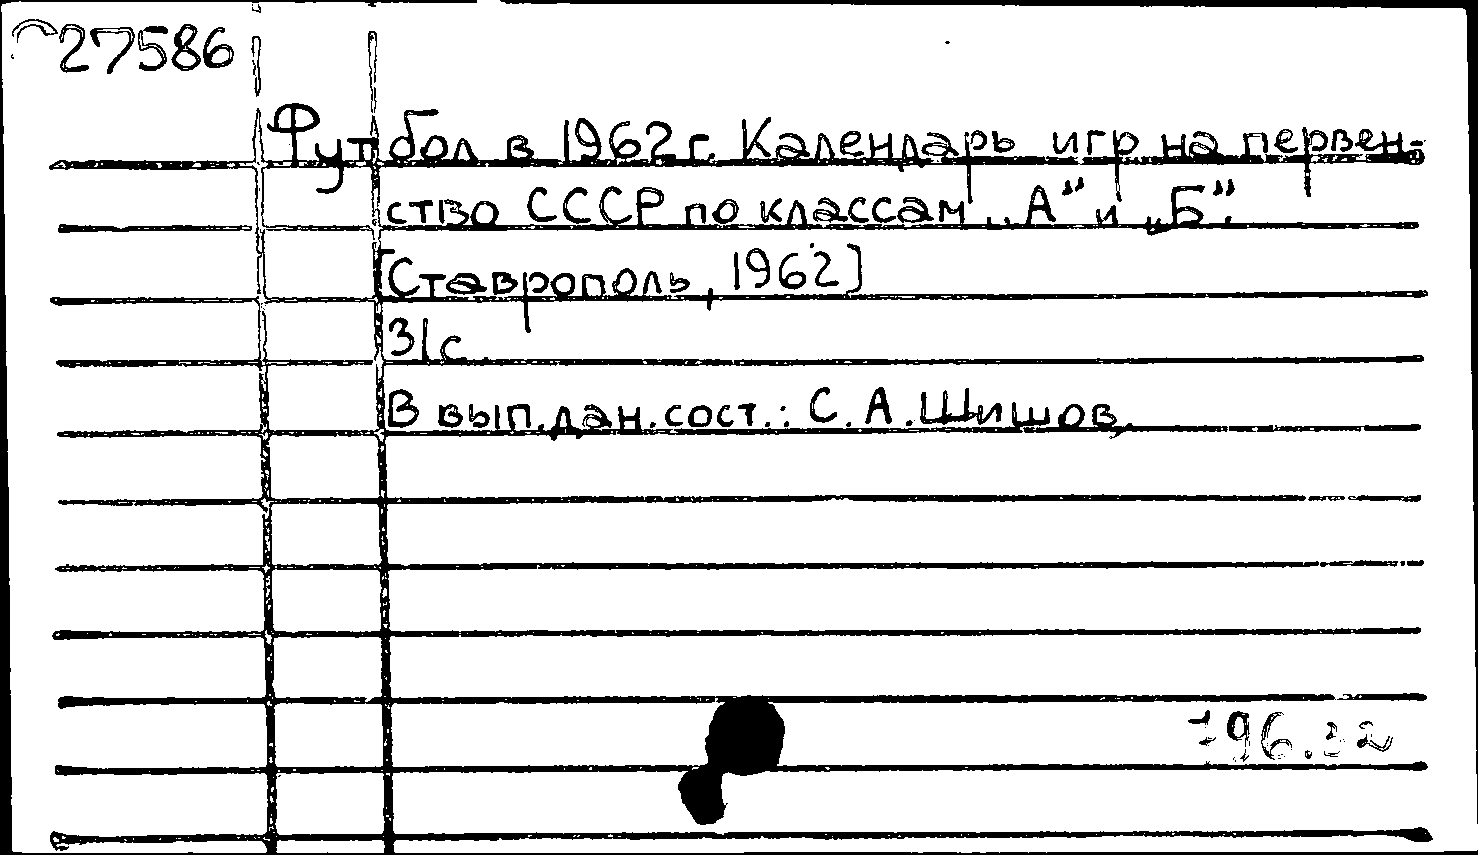 27586
Футбол в 1962 г. Календарь игр на первен-
ство СССР по классам „А“ и „Б“.
[Ставрополь, 1962]
31 с.
В вып. дан. сост.: С. А. Шишов.
796.32